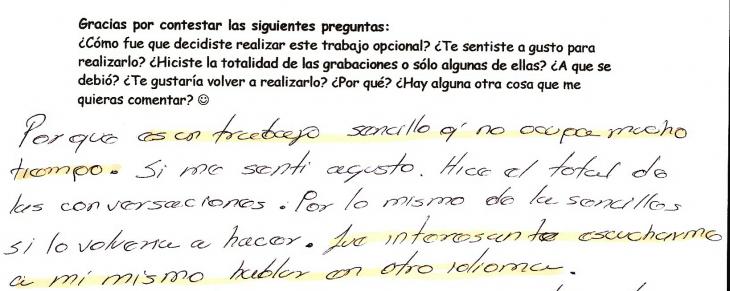 Gracias por contestar las siguientes preguntas:
¿Cómo fue que decidiste realizar este trabajo opcional? ¿Te sentiste a gusto para
realizarlo? ¿Hiciste la totalidad de las grabaciones o sólo algunas de ellas? ¿A que se
debió? ¿Te gustaría volver a realizarlo? ¿Por qué? ¿Hay alguna otra cosa que me
quieras comentar? ☺
Porque es un trabajo sencillo q' no ocupa mucho
tiempo. Si me senti agusto. Hice el total de
las conversaciones. Por lo mismo de la sencilles
si lo volveria a hacer. fue interesante escucharme
a mi mismo hablar en otro idioma.